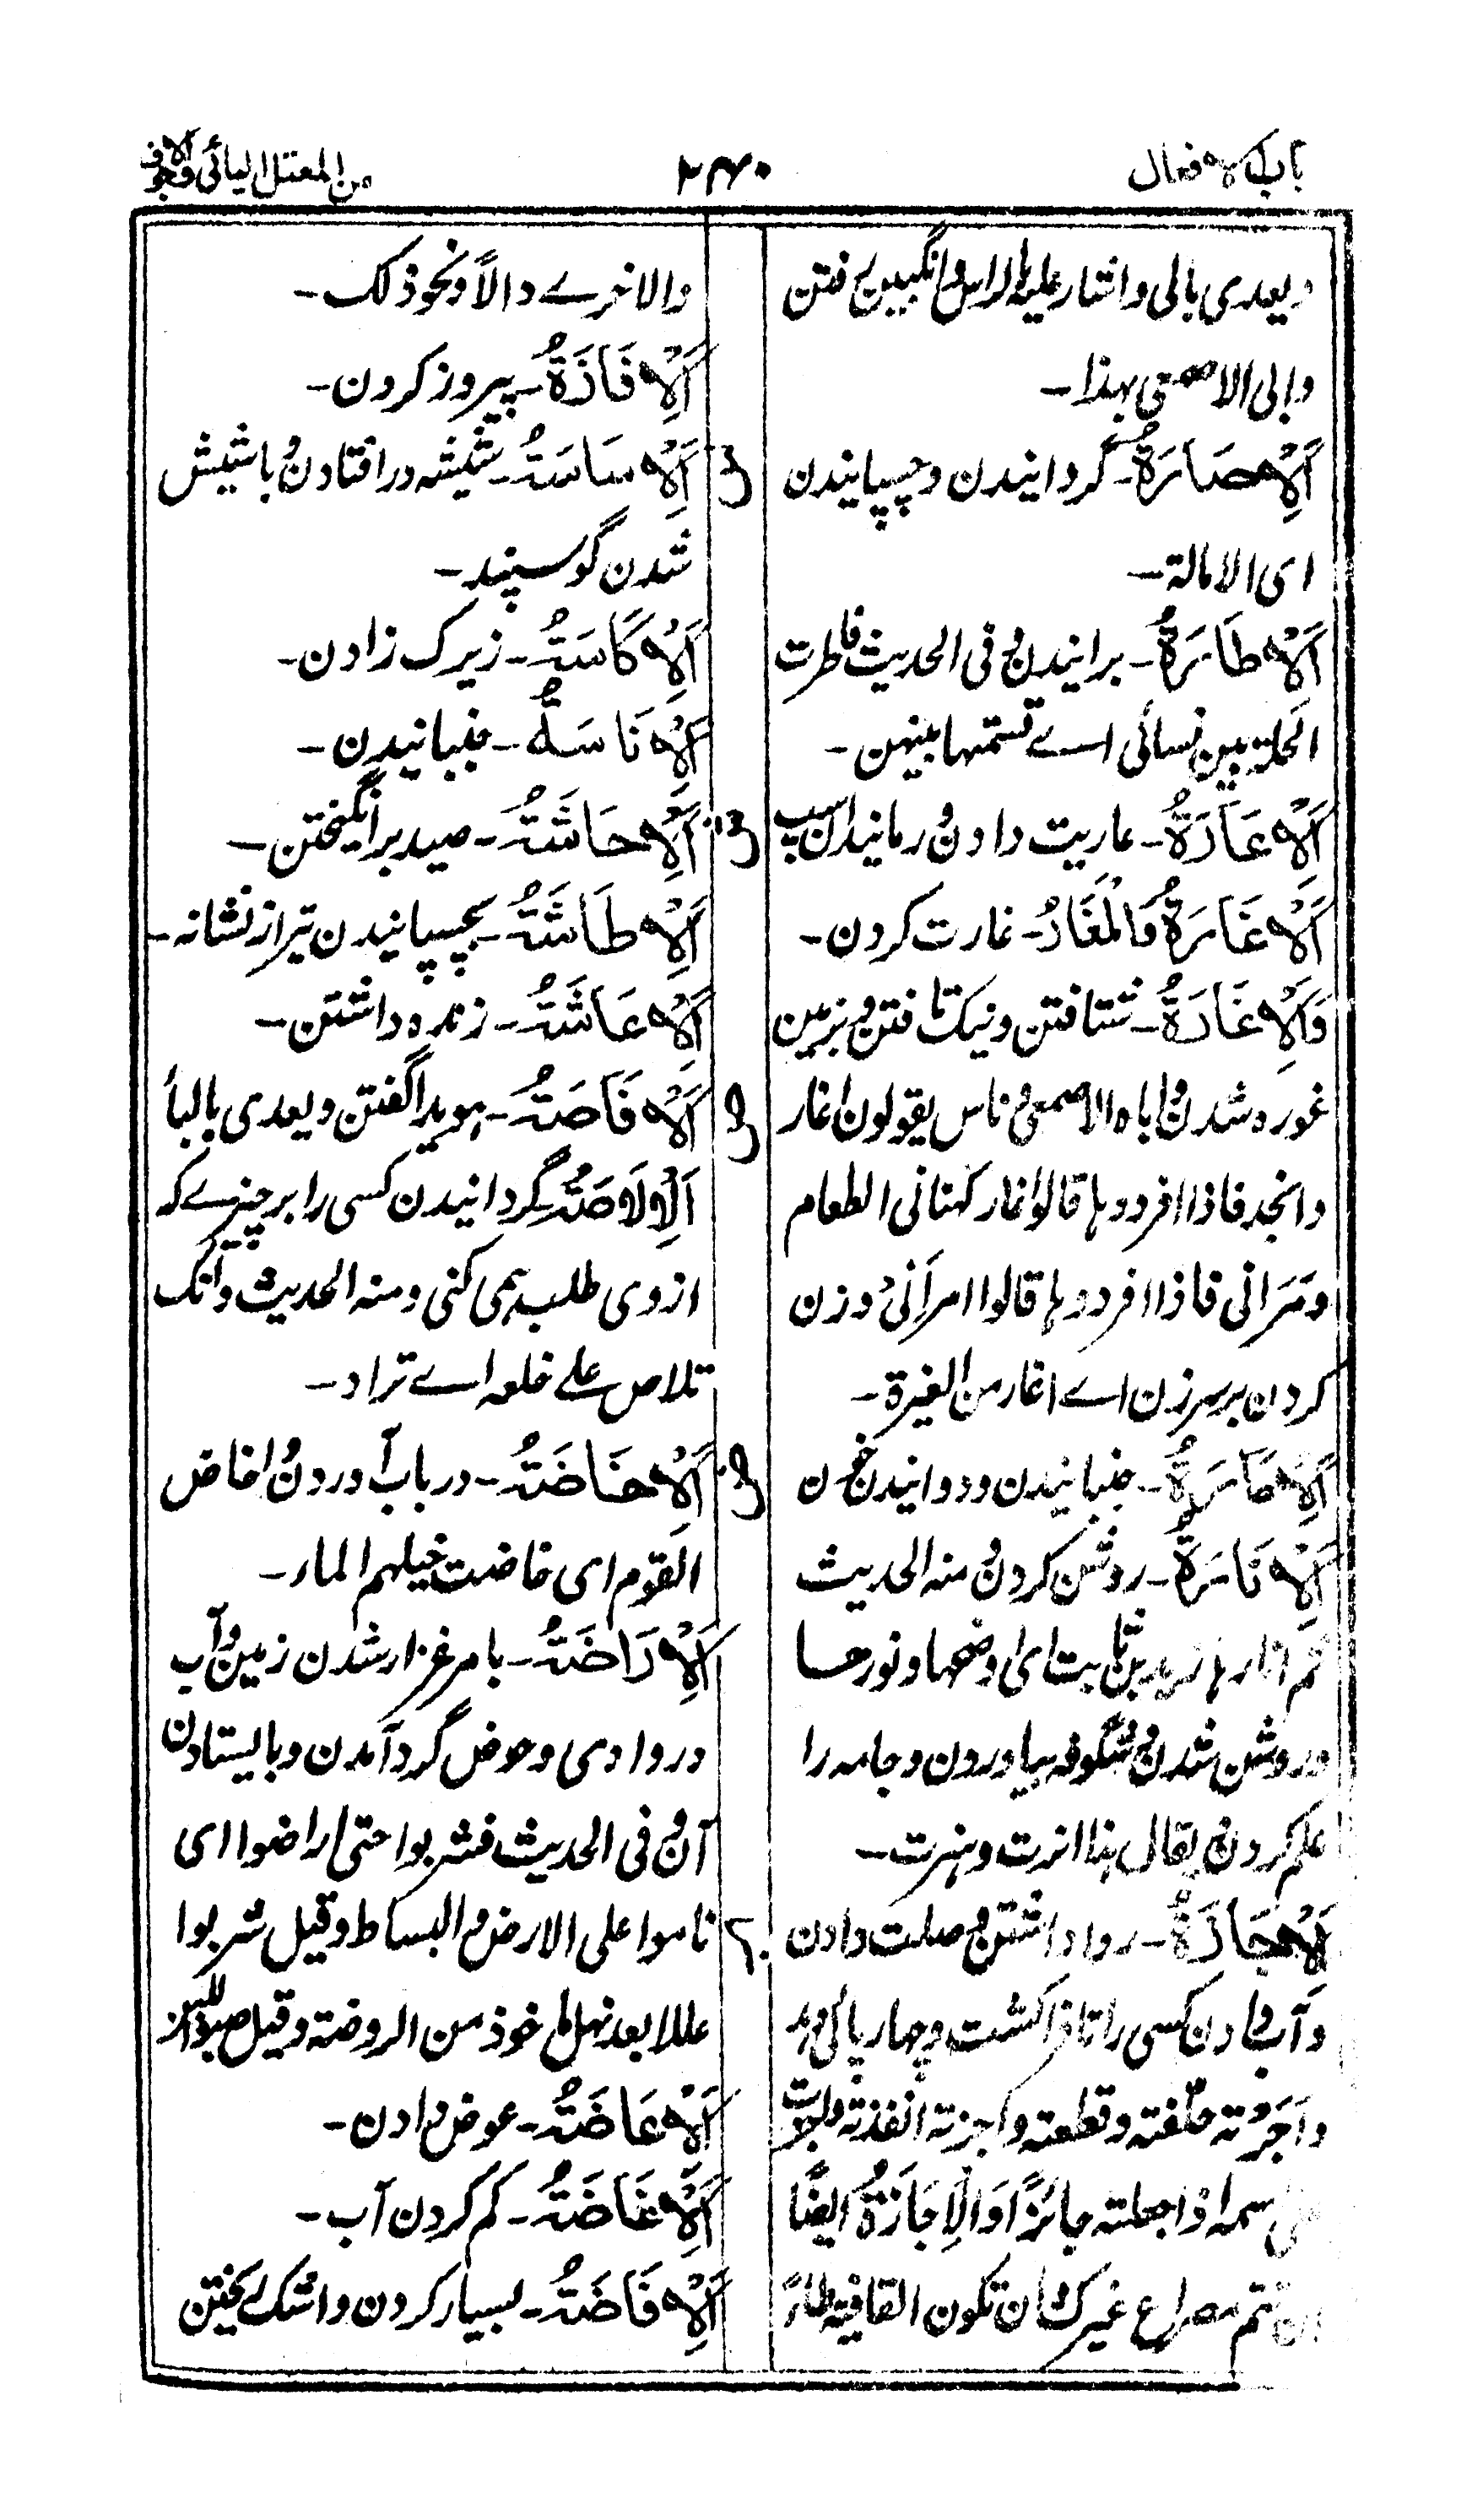 باب الافعال
۲۴۰
من المعتل الیائی والاجوف
ویعدی بالی واشار علیه بالراس وانگبین رفتن
وابی الاصمعی هذا۔
اَلْاِصَارَةُ۔ گردانیدن وچسپانیدن
ای الامالة۔
اَلْاِطَارَةُ۔ پرانیدن وفی الحدیث فاطرت
الحلة بین نسائی اے قسمتها بینهن۔
اَلْاِعَارَةُ۔ عاریت دادن ورمانیدن اسپ
اَلْاِغَارَةُ وَالْمُغَارُ۔ غارت کردن۔
وَالْاِغَارَةُ۔ شتافتن ونیک تافتن وبزمین
غور ه شدن واباه الاصمعی وناس یقولون اغار
وانجد فاذا افردوها قالوا غار کهنانی الطعام
ومَرَانی فاذا افردوها قالوا امرأنی وزن
کردن بر سر زن اے اغار من الغیرة۔
اَلْاِمَارَةُ۔ جنبانیدن ودوانیدن خون
اَلْاِنَارَةُ۔ روشن کردن ومنه الحدیث
ثم انارها زید بن ثابت ای اوضحها ونورها
وروشن شدن وشگوفه بیاوردن وجامه را
علم کردن یقال هذا انرت وهنرت۔
اَلْاِجَازَةُ۔ روا داشتن وصلت دادن
وآب دادن کسی را تا فراکشت وچهارپائی دهد
واَجَزْتُه خلفته وقطعته واجزته انفذته
سمه اذا جعلته جائزًا وَالْاِجَازَةُ ایضًا
تتم مصراع غیرک وان تکون القافیة طاءً
والاخرے دالاً ونحو ذلک۔
اَلْاِفَازَةُ۔ پیروز کردن۔
س اَلْاِسَاسَةُ۔ شپشه در افتادن وبا شپش
شدن گوسپند۔
اَلْاِکَاسَةُ۔ زیرک زادن۔
اَلْاِنَاسَةُ۔ جنبانیدن۔
ش اَلْاِحَاشَةُ۔ صید برانگیختن۔
اَلْاِطَاشَةُ۔ بچسپانیدن تیر از نشانه۔
اَلْاِعَاشَةُ۔ زنده داشتن۔
ص اَلْاِفَاصَةُ۔ هویدا گفتن ویعدی بالبأ
اَلْاِلَاصَةُ۔ گردانیدن کسی را بر چیزے که
از وی طلب همی کنی ومنه الحدیث وانک
تلاص علی خلعه اے تراد۔
ض اَلْاِخَاضَةُ۔ در باب آوردن واخاض
القوم ای خاضت خیلهم الماء۔
اَلْاِرَاضَةُ۔ با مرغزار شدن زمین وآب
در وادی وحوض گرد آمدن وبایستادن
آن وفی الحدیث فشربوا حتی اراضوا ای
ناموا علی الارض والبساط وقیل شربوا
عللا بعد نهل ماخوذ من الروضة وقیل صبوا اللبن
اَلْاِعَاضَةُ۔ عوض دادن۔
اَلْاِغَاضَةُ۔ کم کردن آب۔
اَلْاِفَاضَةُ۔ بسیار کردن واشک ریختن